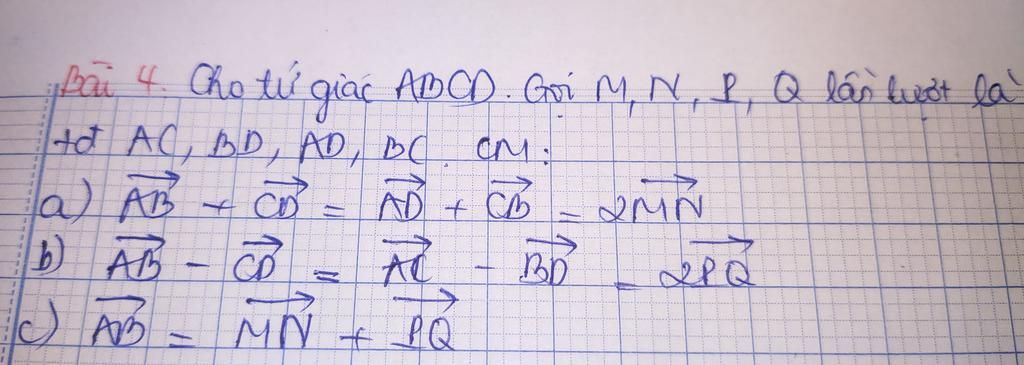 Bài 4. Cho tứ giác ABCD. Gọi M, N, P, Q lần lượt là
tđ AC, BD, AD, BC. CM:
a) $\overrightarrow{AB} + \overrightarrow{CD} = \overrightarrow{AD} + \overrightarrow{CB} = 2\overrightarrow{MN}$
b) $\overrightarrow{AB} - \overrightarrow{CD} = \overrightarrow{AC} - \overrightarrow{BD} = 2\overrightarrow{PQ}$
c) $\overrightarrow{AB} = \overrightarrow{MN} + \overrightarrow{PQ}$